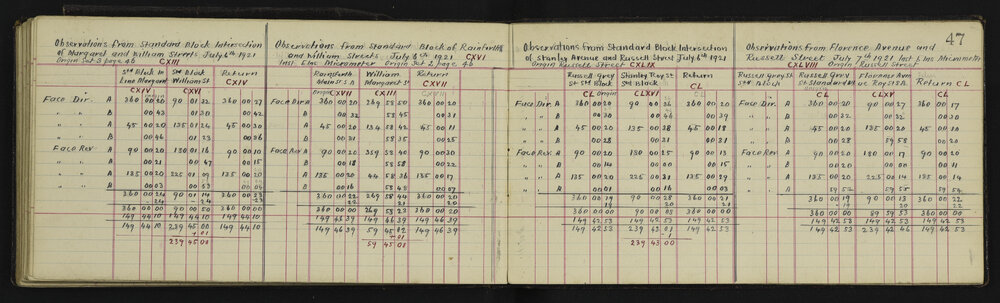 47
Observations from Standard Block Intersection
of Margaret and William Streets July 6th 1921
Origin Set 3 page 46 CXIII
Std Block in Std Block Return
Line Margaret William St
CXIV CXV CXIV
Face Dir. A 360 00 20 90 01 22 360 00 27
" " B 00 43 01 30 00 42
" " A 45 00 20 135 01 26 45 00 30
" " B 00 46 01 23 00 36
Face Rev. A 90 00 20 180 01 16 90 00 10
" " B 00 21 00 47 00 15
" " A 135 00 20 225 01 09 135 00 20
" " B 00 03 00 53 00 04
360 00 24 90 01 14 360 00 23
360 00 00 90 00 50 360 00 00
149 44 10 149 44 10 149 44 10
149 44 10 239 45 00 149 44 10
+ 01
239 45 01
Observations from Standard Block of Rainforth
and William Streets July 6th 1921 CXVI
Inst 6 Ins Micrometer Origin Set 2 page 46
Rainforth William Return
Main St A Margaret St
CXVII CXIII CXVII
Face Dir A 360 00 20 269 58 50 360 00 20
" " B 00 32 58 45 00 31
" " A 45 00 20 134 58 42 45 00 11
" " B 00 31 58 35 00 25
Face Rev A 90 00 20 359 58 40 90 00 30
" " B 00 18 58 58 00 22
" " A 135 00 20 44 58 36 135 00 17
" " B 00 16 58 48 00 07
360 00 22 269 58 44 360 00 20
360 00 00 269 58 23 360 00 20
149 46 39 149 46 39 149 46 39
149 46 39 59 45 02 149 46 39
59 45 01
Observations from Standard Block Intersection
of Stanley Avenue and Russell Street July 6th 1921
Origin Russell Street CXLIX
Russell Grey Stanley Roy St Return
St Std Block Std Block
CL CLXVI CL
Face Dir A 360 00 20 90 00 36 360 00 20
" " B 00 30 00 46 00 39
" " A 45 00 20 135 00 28 45 00 18
" " B 00 28 00 31 00 31
Face Rev A 90 00 20 180 00 25 90 00 13
" " B 00 14 00 00 00 15
" " A 135 00 20 225 00 31 135 00 29
" " B 00 01 00 16 00 03
360 00 19 90 00 28 360 00 21
360 00 00 90 00 08 360 00 00
149 42 53 149 42 53 149 42 53
149 42 53 239 43 01 149 42 53
239 43 00
Observations from Florence Avenue and
Russell Street July 7th 1921 Inst 6 Ins Micrometer
CXLVIII Origin Russell Street
Russell Grey Florence Ave Return CL
CL CLXV
Face Dir. A 360 00 20 90 00 27 360 00 17
" " B 00 32 00 32 00 30
" " A 45 00 20 135 00 20 45 00 20
" " B 00 28 59 58 00 20
Face Rev A 90 00 20 180 00 17 90 00 20
" " B 00 20 00 00 00 01
" " A 135 00 20 225 00 14 135 00 14
" " B 59 52 59 55 59 54
360 00 19 90 00 13 360 00 22
360 00 00 89 59 53 360 00 00
149 42 53 149 42 53 149 42 53
149 42 53 239 42 46 149 42 53